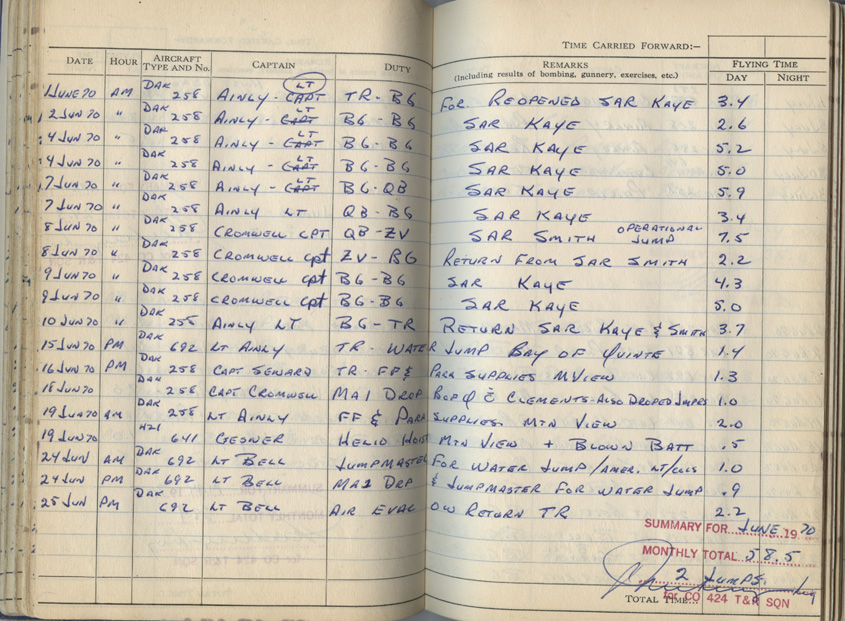 TIME CARRIED FORWARD:–
DATE HOUR AIRCRAFT TYPE AND No. CAPTAIN DUTY REMARKS (Including results of bombing, gunnery, exercises, etc.) FLYING TIME DAY NIGHT
1 JUNE 70 AM DAK 258 AINLY - CAPT LT TR - BG FOR REOPENED SAR KAYE 3.4
2 JUN 70 " DAK 258 AINLY - CAPT LT BG - BG SAR KAYE 2.6
4 JUN 70 " DAK 258 AINLY - CAPT LT BG - BG SAR KAYE 5.2
4 JUN 70 " DAK 258 AINLY - CAPT LT BG - BG SAR KAYE 5.0
7 JUN 70 " DAK 258 AINLY - CAPT LT BG - QB SAR KAYE 5.9
7 JUN 70 " DAK 258 AINLY LT QB - BG SAR KAYE 3.4
8 JUN 70 " DAK 258 CROMWELL CPT QB - ZV SAR SMITH OPERATIONAL JUMP 7.5
8 JUN 70 " DAK 258 CROMWELL cpt ZV - BG RETURN FROM SAR SMITH 2.2
9 JUN 70 " DAK 258 CROMWELL cpt BG - BG SAR KAYE 4.3
9 JUN 70 " DAK 258 CROMWELL cpt BG - BG SAR KAYE 5.0
10 JUN 70 " DAK 258 AINLY LT BG - TR RETURN SAR KAYE & SMITH 3.7
15 JUN 70 PM DAK 692 LT AINLY TR - WATER JUMP BAY OF QUINTE 1.4
16 JUN 70 PM DAK 258 CAPT SEWARD TR - FF & PARA SUPPLIES MVIEW 1.3
18 JUN 70 DAK 258 CAPT CROMWELL MA1 DROP B OF Q & CLEMENTS - ALSO DROPED JMPRS 1.0
19 JUN 70 AM DAK 258 LT AINLY FF & PARA SUPPLIES MTN VIEW 2.0
19 JUN 70 H21 641 GESNER HELIO HOIST MTN VIEW + BLOWN BATT .5
24 JUN AM DAK 692 LT BELL JUMPMASTER FOR WATER JUMP/AMER. 1.0
24 JUN PM DAK 692 LT BELL MA1 DRP & JUMPMASTER FOR WATER JUMP .9
25 JUN PM DAK 692 LT BELL AIR EVAC OW RETURN TR 2.2
SUMMARY FOR JUNE 1970
MONTHLY TOTAL 58.5
2 JUMPS.
TOTAL TIME... for CO 424 T&R SQN